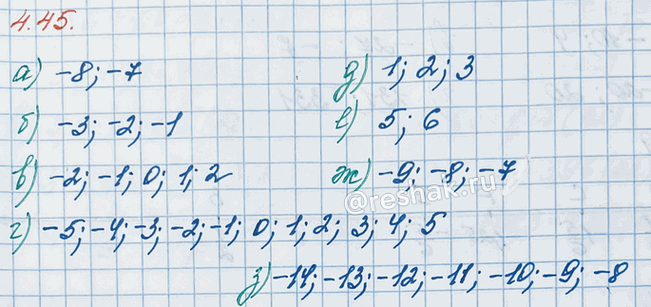 4.45.
а) -8; -7
д) 1; 2; 3
б) -3; -2; -1
е) 5; 6
в) -2; -1; 0; 1; 2
ж) -9; -8; -7
@reshak.ru
г) -5; -4; -3; -2; -1; 0; 1; 2; 3; 4; 5
з) -14; -13; -12; -11; -10; -9; -8